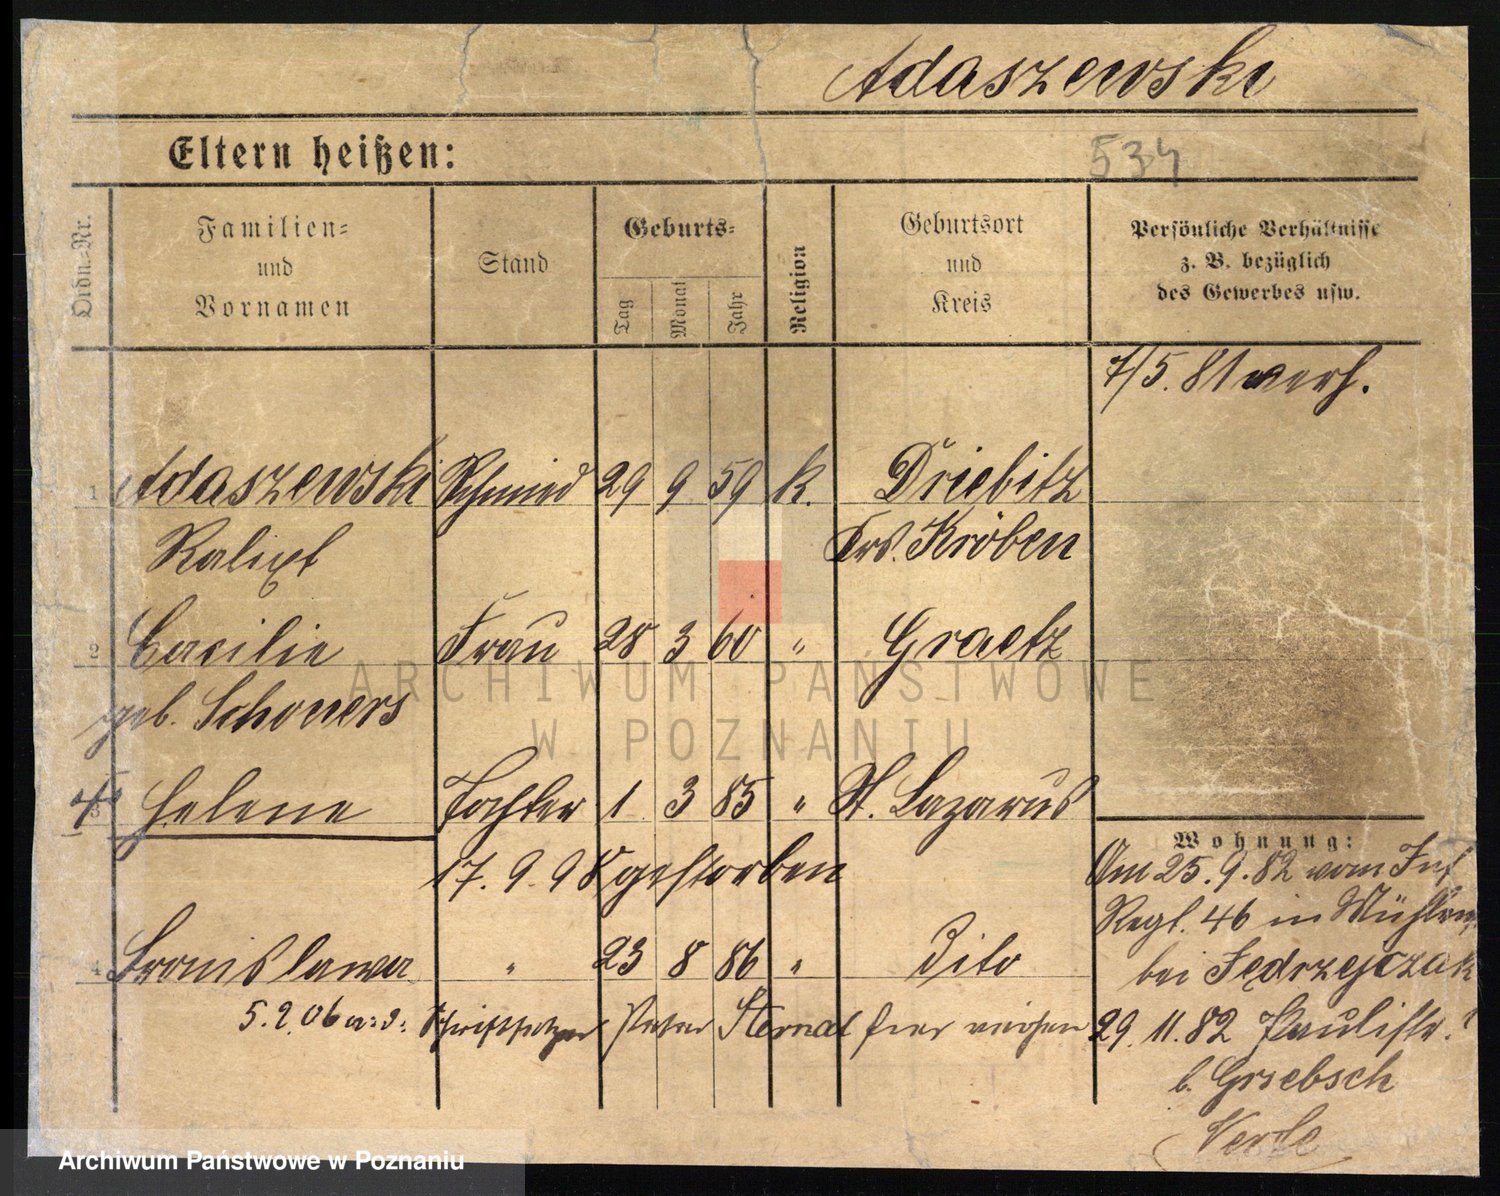 Adaszewski
Eltern heißen:
534
Ordn.-Nr.
Familien-
und
Vornamen
Stand
Geburts-
Tag
Monat
Jahr
Religion
Geburtsort
und
Kreis
Persönliche Verhältnisse
z. B. bezüglich
des Gewerbes usw.
7/5. 81 verh.
1 Adaszewski Schmied 29 9 59 k. Driebitz
Kalixt Krs. Kröben
2 Caecilie Frau 28 3 60 " Graetz
geb. Schoners
3 Helene Tochter 1 3 85 " St. Lazarus
17. 9. 98 gestorben
4 Bronislawa " 23 8 86 " Dito
5. 2. 06 a: d: Schriftsetzer Peter Sternal hier
Wohnung:
Am 25. 9. 82 vom Inf
Regt. 46 in Mühlen
bei Jedrzejczak
29. 11. 82 Paulistr.
b. Grsebsch
ARCHIWUM PAŃSTWOWE
W POZNANIU
Archiwum Państwowe w Poznaniu